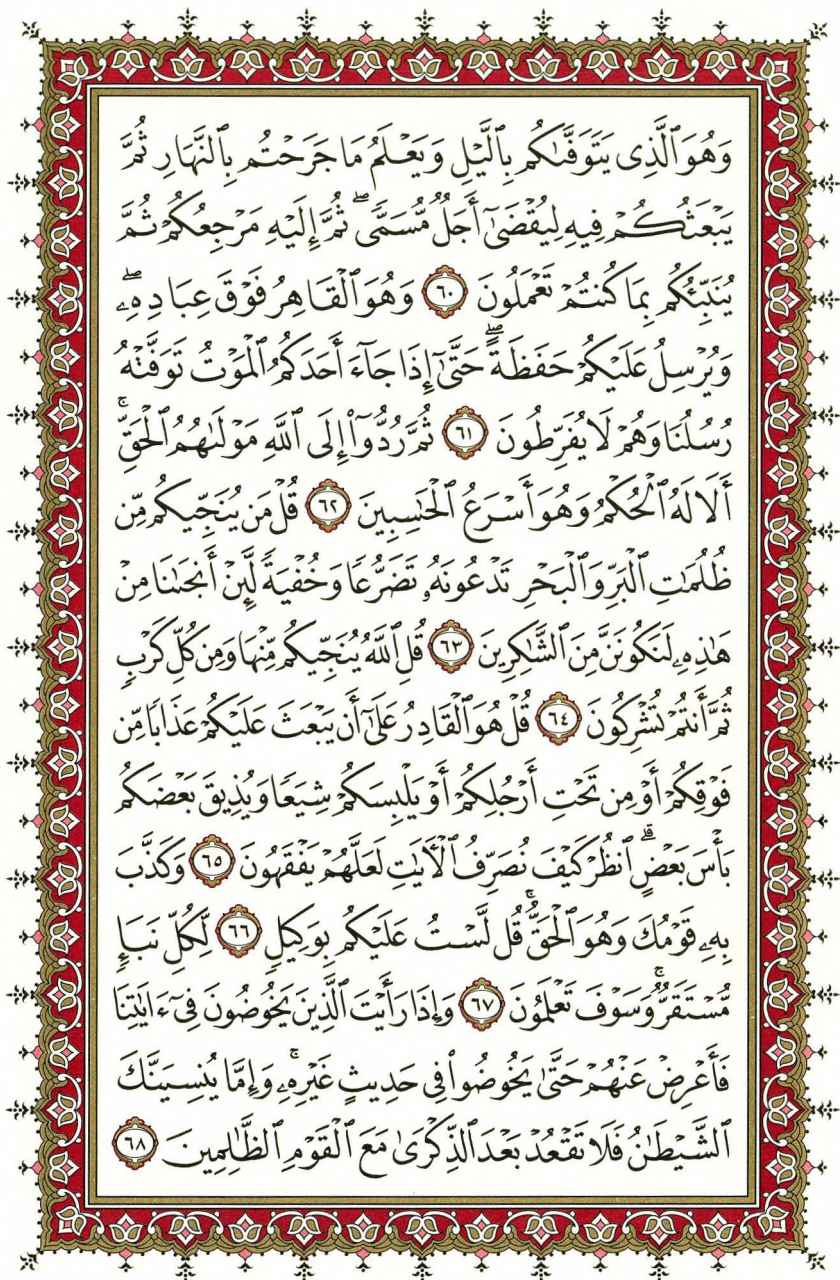 وَهُوَ ٱلَّذِى يَتَوَفَّىٰكُم بِٱلَّيْلِ وَيَعْلَمُ مَا جَرَحْتُم بِٱلنَّهَارِ ثُمَّ
يَبْعَثُكُمْ فِيهِ لِيُقْضَىٰٓ أَجَلٌ مُّسَمًّى ۖ ثُمَّ إِلَيْهِ مَرْجِعُكُمْ ثُمَّ
يُنَبِّئُكُم بِمَا كُنتُمْ تَعْمَلُونَ ٦٠ وَهُوَ ٱلْقَاهِرُ فَوْقَ عِبَادِهِۦ ۖ
وَيُرْسِلُ عَلَيْكُمْ حَفَظَةً ۖ حَتَّىٰٓ إِذَا جَآءَ أَحَدَكُمُ ٱلْمَوْتُ تَوَفَّتْهُ
رُسُلُنَا وَهُمْ لَا يُفَرِّطُونَ ٦١ ثُمَّ رُدُّوٓا۟ إِلَى ٱللَّهِ مَوْلَىٰهُمُ ٱلْحَقِّ ۚ
أَلَا لَهُ ٱلْحُكْمُ وَهُوَ أَسْرَعُ ٱلْحَٰسِبِينَ ٦٢ قُلْ مَن يُنَجِّيكُم مِّن
ظُلُمَٰتِ ٱلْبَرِّ وَٱلْبَحْرِ تَدْعُونَهُۥ تَضَرُّعًا وَخُفْيَةً لَّئِنْ أَنجَىٰنَا مِنْ
هَٰذِهِۦ لَنَكُونَنَّ مِنَ ٱلشَّٰكِرِينَ ٦٣ قُلِ ٱللَّهُ يُنَجِّيكُم مِّنْهَا وَمِن كُلِّ كَرْبٍ
ثُمَّ أَنتُمْ تُشْرِكُونَ ٦٤ قُلْ هُوَ ٱلْقَادِرُ عَلَىٰٓ أَن يَبْعَثَ عَلَيْكُمْ عَذَابًا مِّن
فَوْقِكُمْ أَوْ مِن تَحْتِ أَرْجُلِكُمْ أَوْ يَلْبِسَكُمْ شِيَعًا وَيُذِيقَ بَعْضَكُم
بَأْسَ بَعْضٍ ۗ ٱنظُرْ كَيْفَ نُصَرِّفُ ٱلْءَايَٰتِ لَعَلَّهُمْ يَفْقَهُونَ ٦٥ وَكَذَّبَ
بِهِۦ قَوْمُكَ وَهُوَ ٱلْحَقُّ ۚ قُل لَّسْتُ عَلَيْكُم بِوَكِيلٍ ٦٦ لِّكُلِّ نَبَإٍ
مُّسْتَقَرٌّ ۚ وَسَوْفَ تَعْلَمُونَ ٦٧ وَإِذَا رَأَيْتَ ٱلَّذِينَ يَخُوضُونَ فِىٓ ءَايَٰتِنَا
فَأَعْرِضْ عَنْهُمْ حَتَّىٰ يَخُوضُوا۟ فِى حَدِيثٍ غَيْرِهِۦ ۚ وَإِمَّا يُنسِيَنَّكَ
ٱلشَّيْطَٰنُ فَلَا تَقْعُدْ بَعْدَ ٱلذِّكْرَىٰ مَعَ ٱلْقَوْمِ ٱلظَّٰلِمِينَ ٦٨